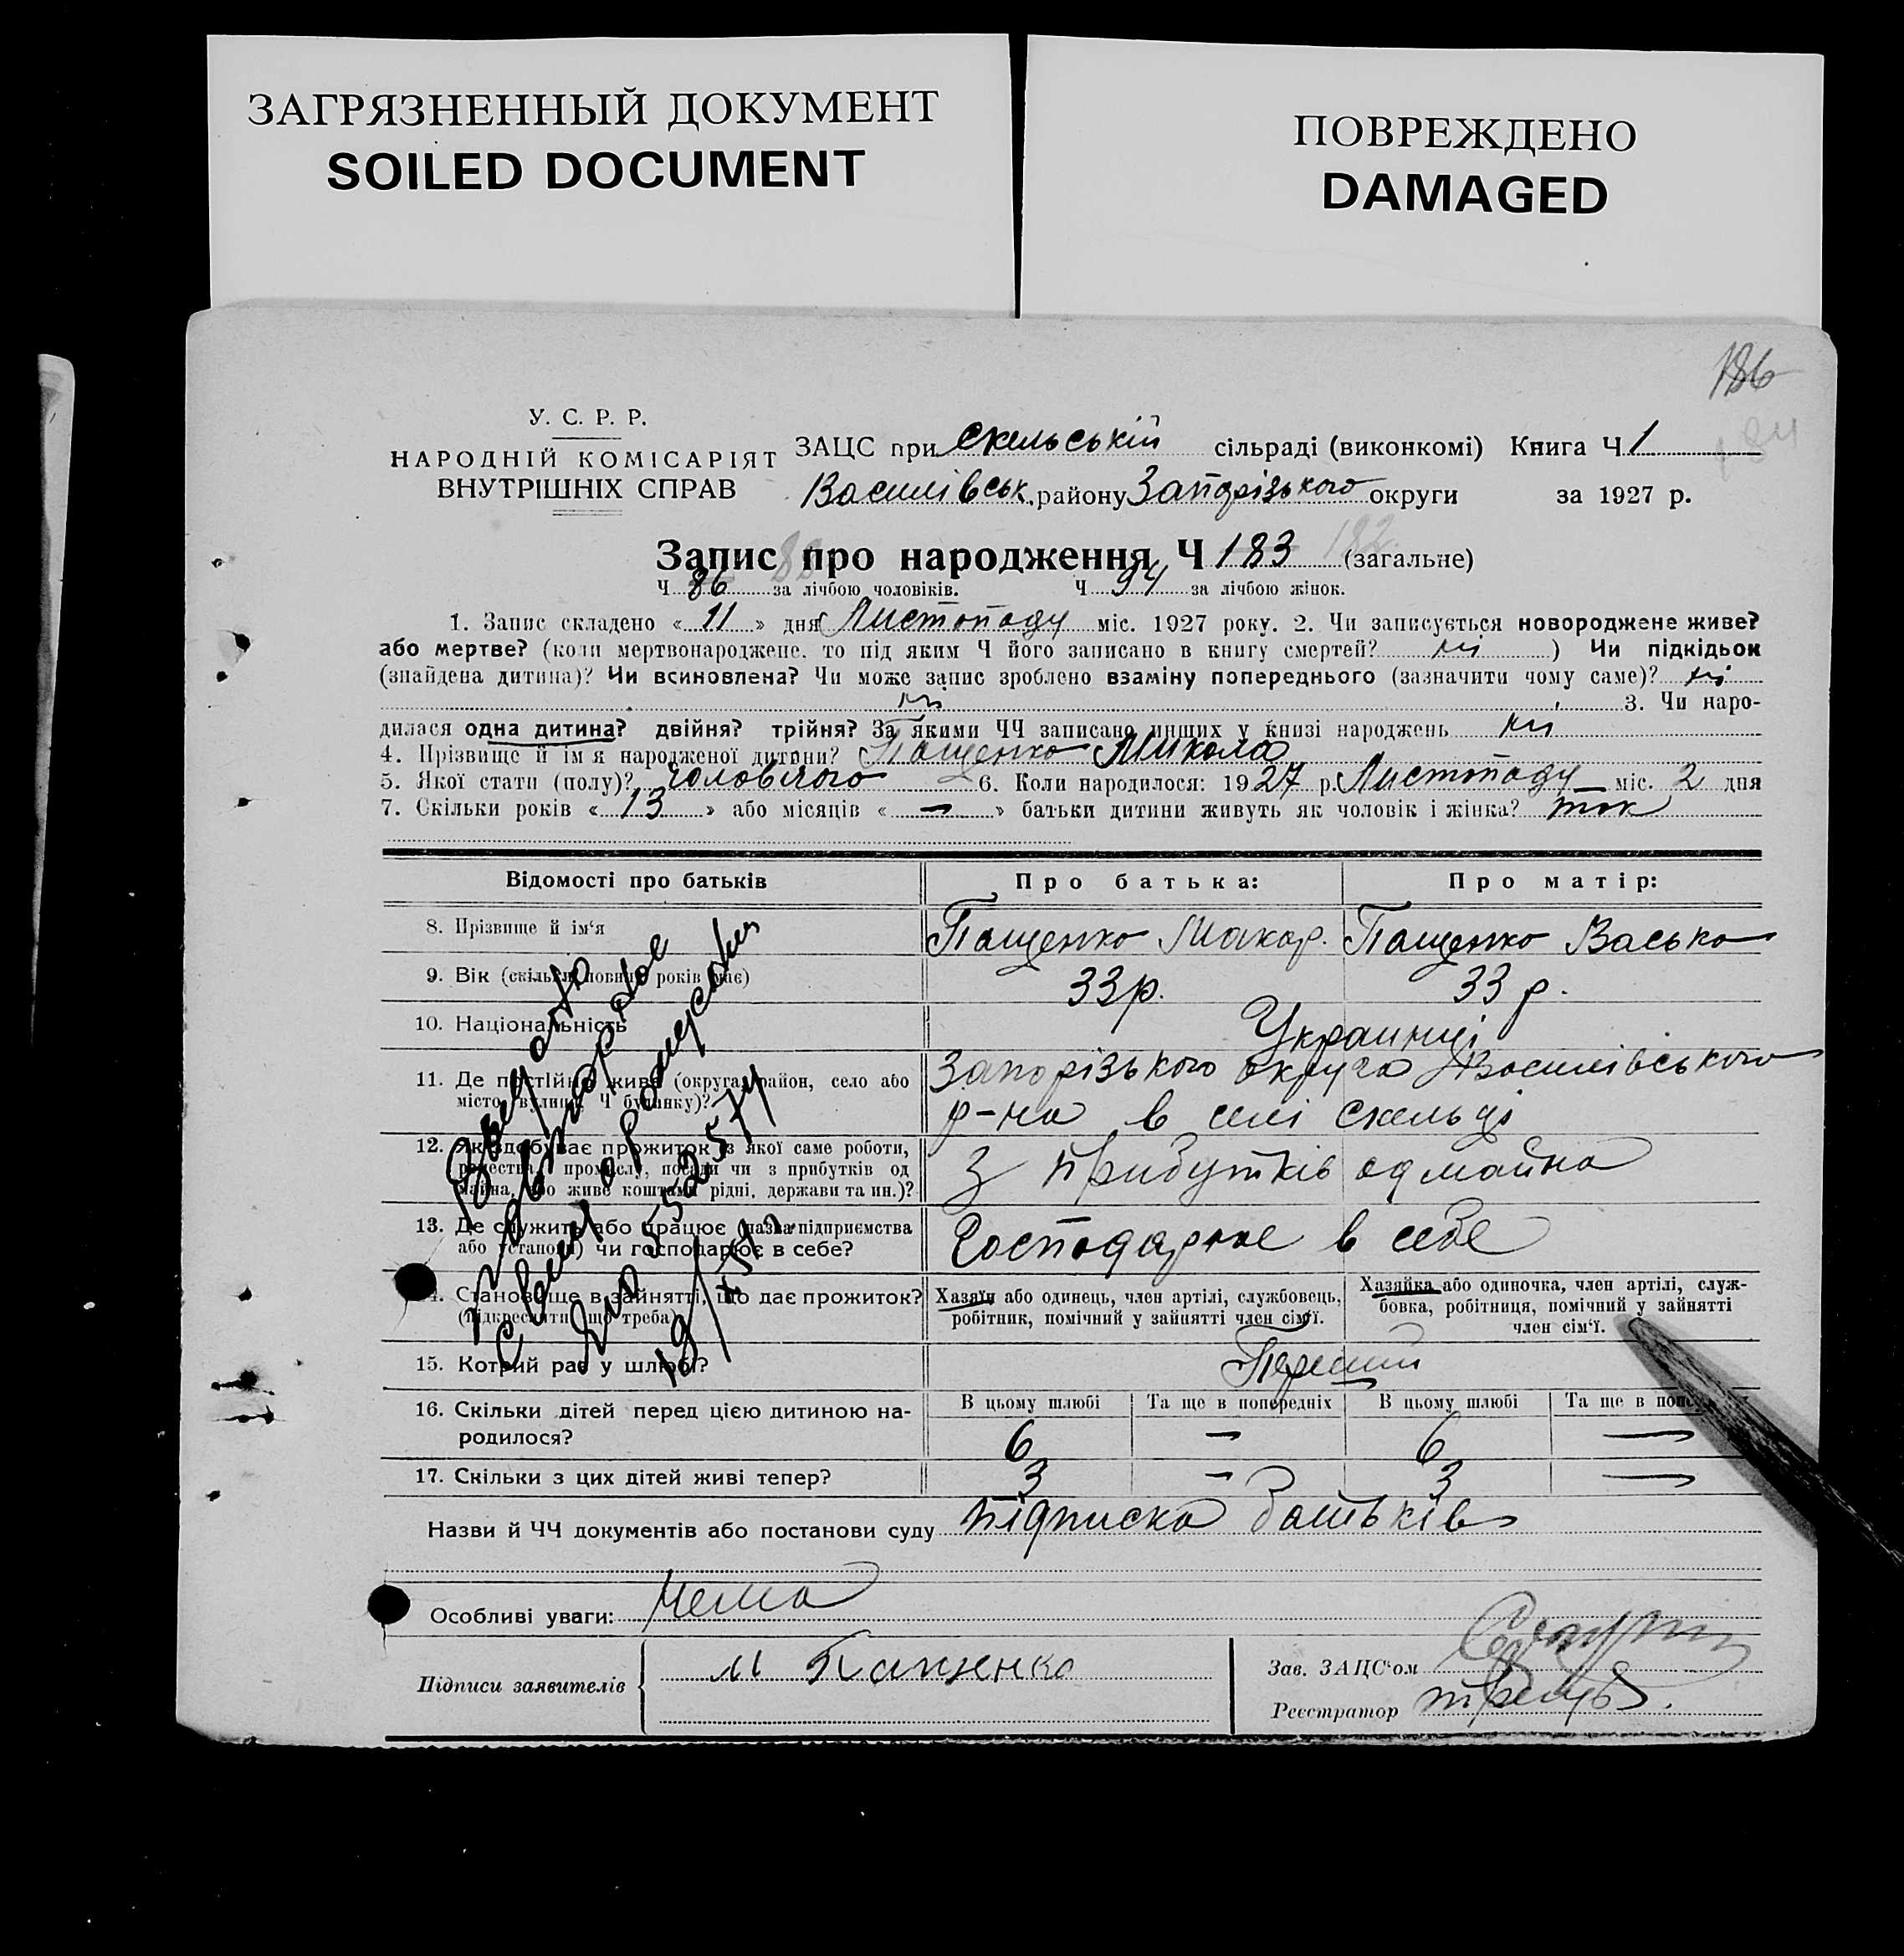 ЗАГРЯЗНЕННЫЙ ДОКУМЕНТ
SOILED DOCUMENT
ПОВРЕЖДЕНО
DAMAGED
186
184
У. С. Р. Р.
НАРОДНІЙ КОМІСАРІЯТ
ВНУТРІШНІХ СПРАВ
ЗАЦС при Скельській сільраді (виконкомі) Книга Ч 1
Василівськ. району Запорізького округи за 1927 р.
Запис про народження Ч 183 182 (загальне)
Ч 86 за лічбою чоловіків. Ч 94 за лічбою жінок.
1. Запис складено « 11 » дня Листопаду міс. 1927 року. 2. Чи записується новороджене живе?
або мертве? (коли мертвонароджене, то під яким Ч його записано в книгу смертей? ні ) Чи підкідьок
(знайдена дитина)? Чи всиновлена? Чи може запис зроблено взаміну попереднього (зазначити чому саме)? ні
ні 3. Чи наро-
дилася одна дитина? двійня? трійня? За якими ЧЧ записано инших у книзі народжень ні
4. Прізвище й ім'я народженої дитини? Пащенко Микола
5. Якої стати (полу)? Чоловічого 6. Коли народилося: 1927 р. Листопаду міс. 2 дня
7. Скільки років « 13 » або місяців « — » батьки дитини живуть як чоловік і жінка? так
Відомості про батьків Про батька: Про матір:
8. Прізвище й ім'я Пащенко Макар. Пащенко Васька
9. Вік (скільки повних років має) 33 р. 33 р.
10. Національність Украинці
11. Де постійно живе (округа, район, село або Запорізького округа Василівського
місто, вулиця, Ч будинку)? р-на в селі Скельці
12. Як здобуває прожиток (з якої саме роботи,
ремества, промислу, посади чи з прибутків од З прибутків од майна
майна, або живе коштами рідні, держави та ин.)?
13. Де служить або працює (назва підприємства
або установи) чи господарює в себе? Господарює в себе
14. Становище в зайнятті, що дає прожиток?
(підкреслити що треба)
Хазяїн або одинець, член артілі, службовець,
робітник, помічний у зайнятті член сім'ї.
Хазяйка або одиночка, член артілі, служ-
бовка, робітниця, помічний у зайнятті
член сім'ї.
15. Котрий раз у шлюбі? Перший
16. Скільки дітей перед цією дитиною на-
родилося?
В цьому шлюбі Та ще в попередніх В цьому шлюбі Та ще в
6 — 6 —
17. Скільки з цих дітей живі тепер? 3 — 3 —
Назви й ЧЧ документів або постанови суду підписка батьків
Особливі уваги: Нема
Підписи заявителів М Пащенко
Зав. ЗАЦС'ом
Реєстратор
Видано
повторное
Свид о рождении
552574